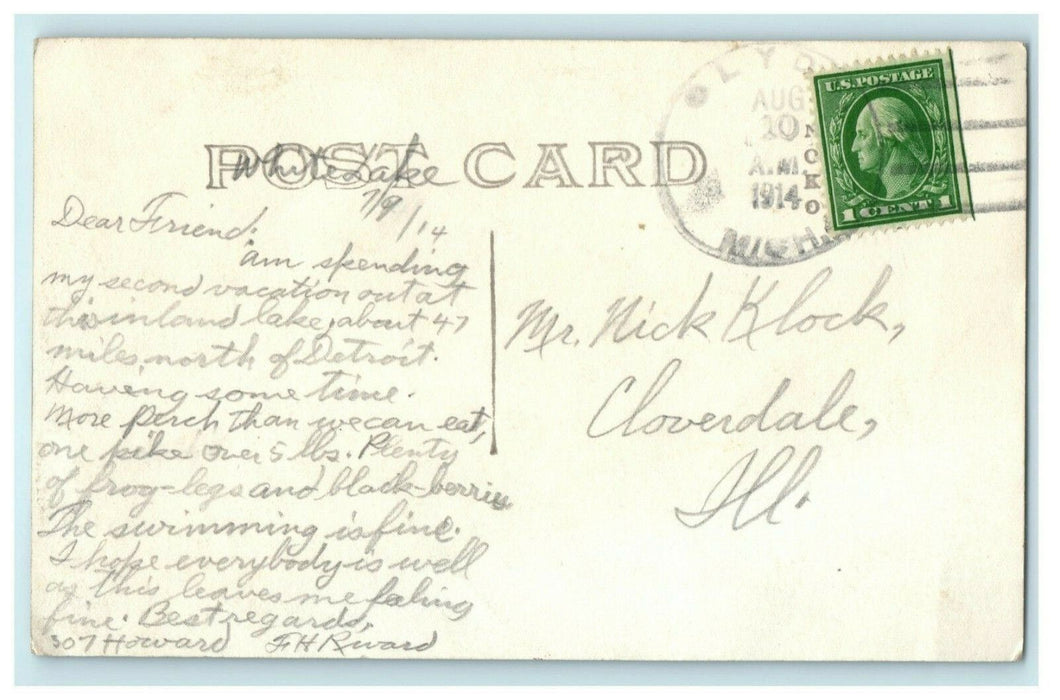 POST CARD
White Lake
7/9/14
Dear Friend:
am spending
my second vacation out at
this inland lake, about 47
miles north of Detroit.
Having some time.
More perch than we can eat,
one pike over 5 lbs. Plenty
of frog-legs and black-berries
The swimming is fine.
I hope everybody is well
as this leaves me feeling
fine. Best regards,
307 Howard FH Riward
CLYD
AUG
10
A.M.
1914
MICH.
U.S. POSTAGE
1 CENT 1
Mr. Nick Klock,
Cloverdale,
Ill.